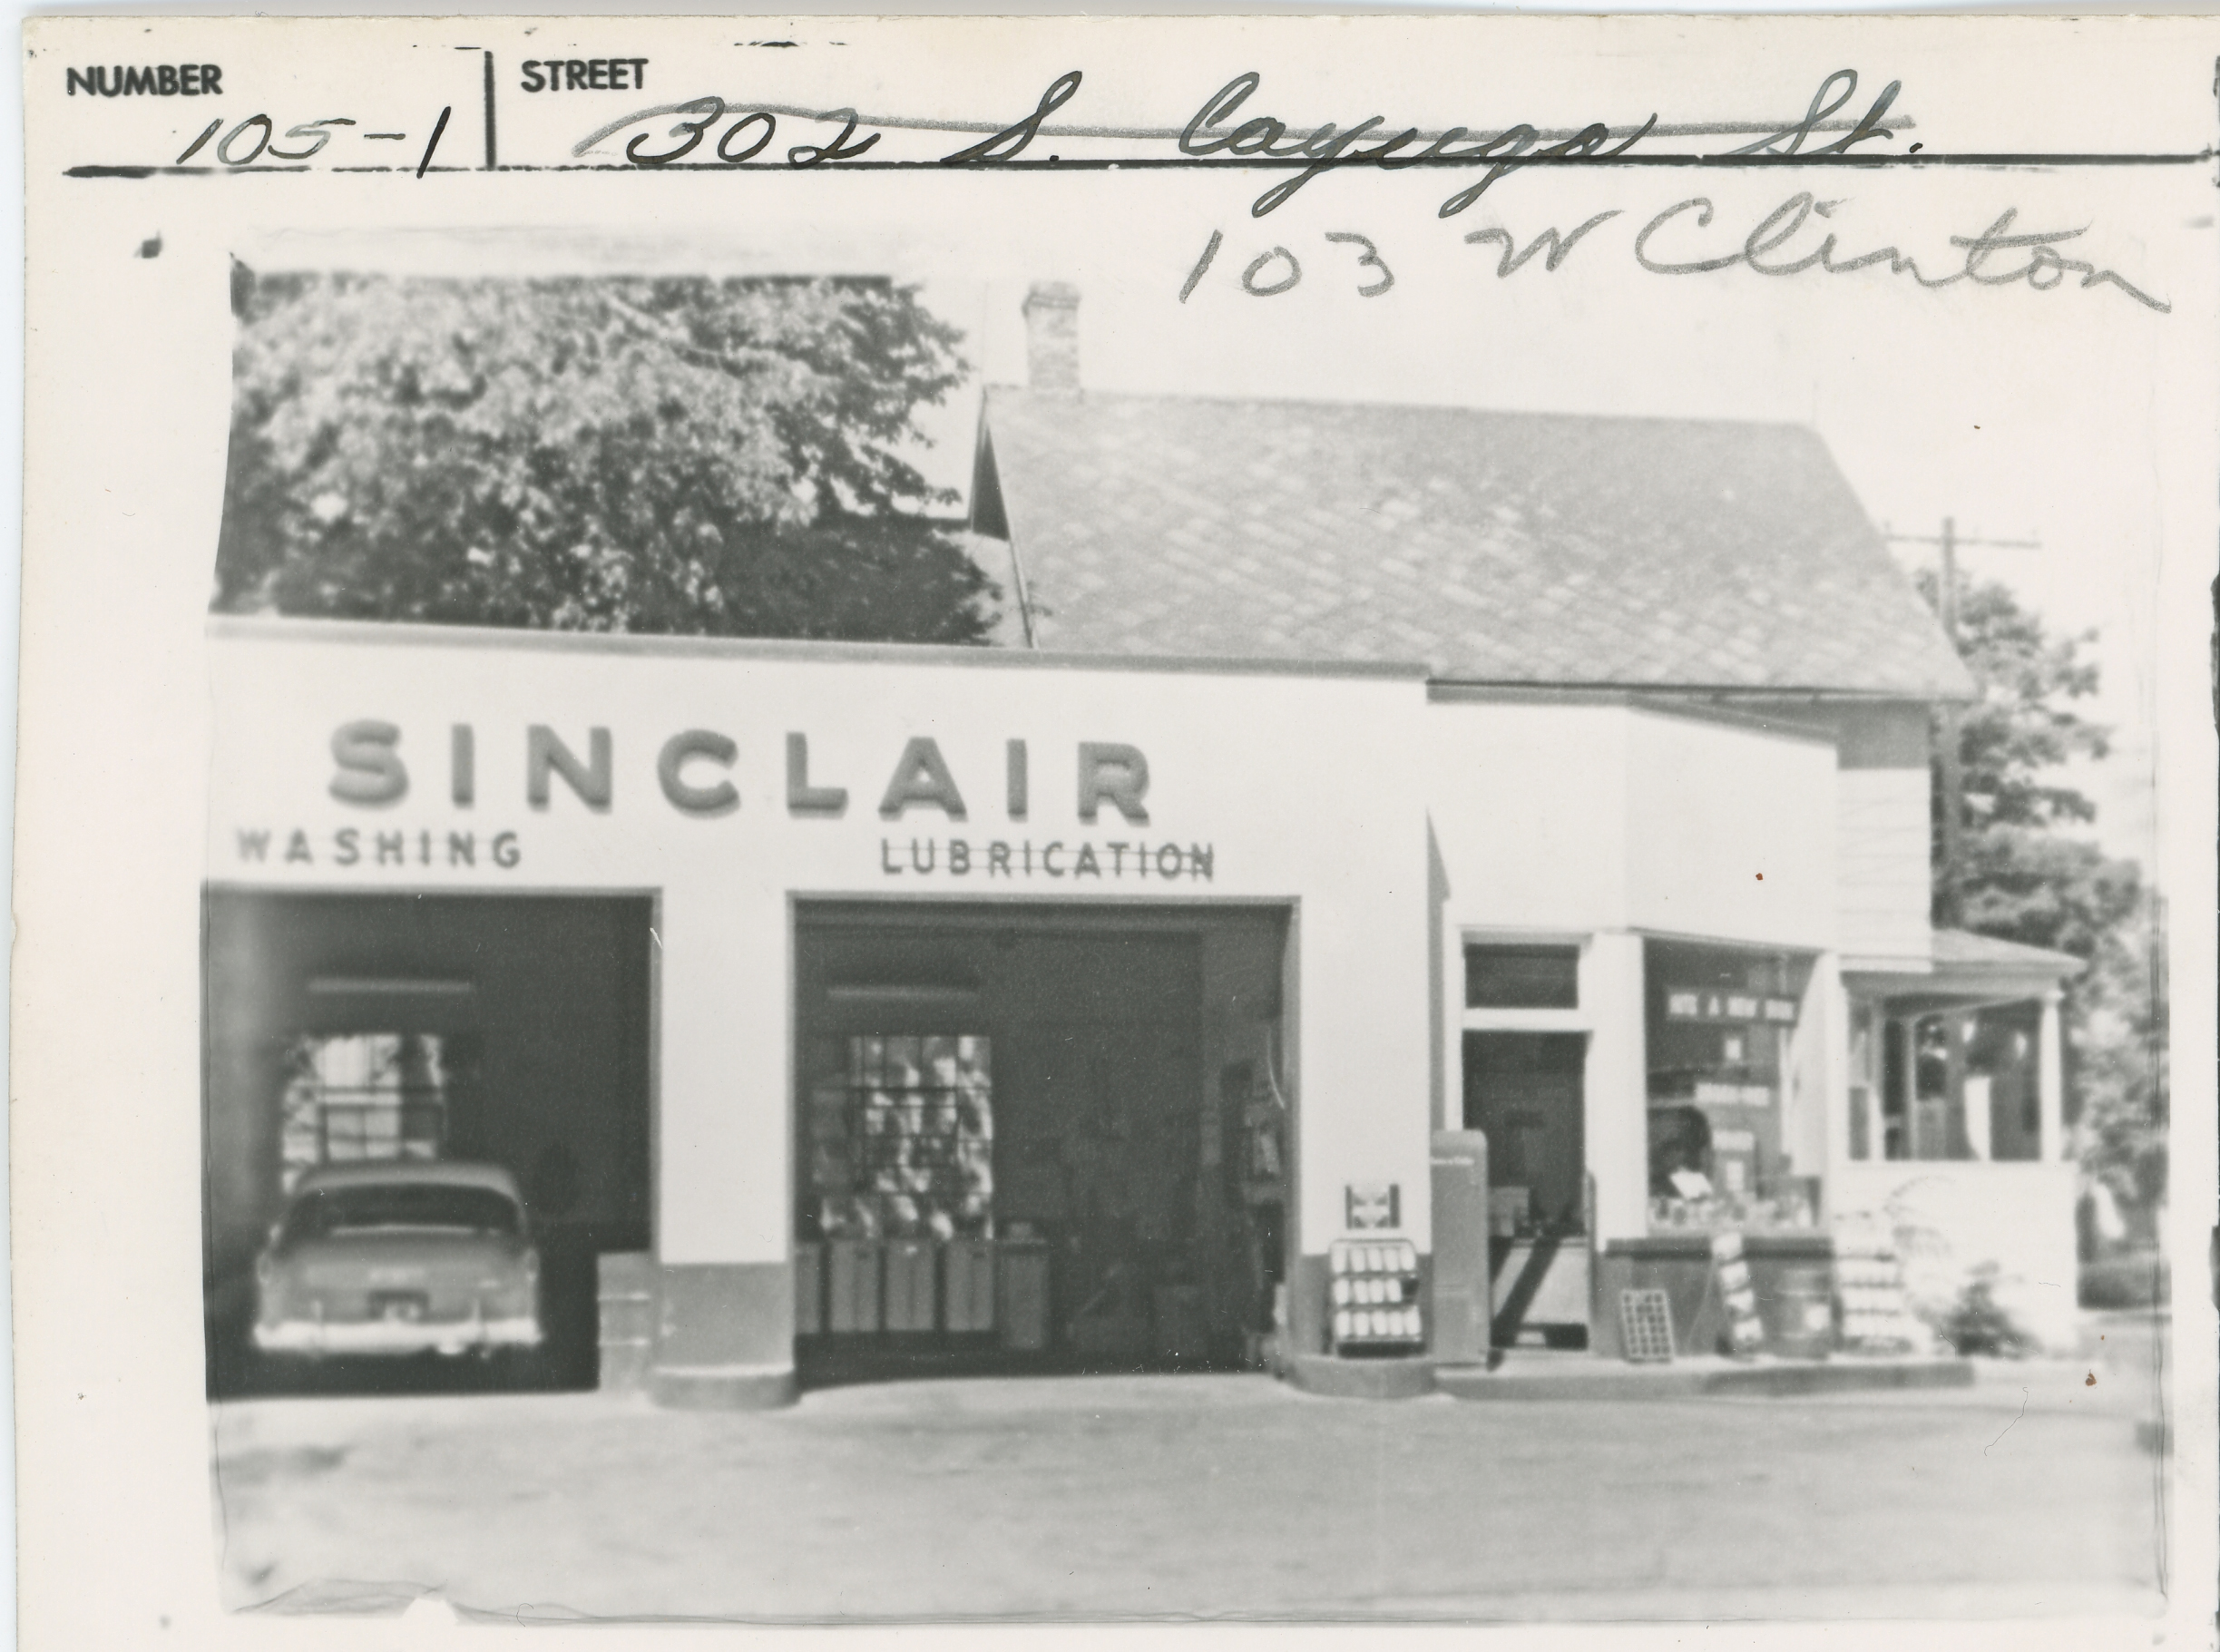 NUMBER STREET
105-1 302 S. Cayuga St.
103 W Clinton
SINCLAIR
WASHING LUBRICATION